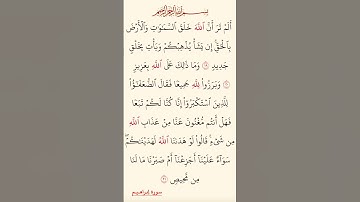 بِسْمِ ٱللَّهِ ٱلرَّحْمَٰنِ ٱلرَّحِيمِ
أَلَمْ تَرَ أَنَّ ٱللَّهَ خَلَقَ ٱلسَّمَٰوَٰتِ وَٱلْأَرْضَ
بِٱلْحَقِّ إِن يَشَأْ يُذْهِبْكُمْ وَيَأْتِ بِخَلْقٍ
جَدِيدٍ ١٩ وَمَا ذَٰلِكَ عَلَى ٱللَّهِ بِعَزِيزٍ
٢٠ وَبَرَزُوا۟ لِلَّهِ جَمِيعًا فَقَالَ ٱلضُّعَفَٰٓؤُا۟
لِلَّذِينَ ٱسْتَكْبَرُوٓا۟ إِنَّا كُنَّا لَكُمْ تَبَعًا
فَهَلْ أَنتُم مُّغْنُونَ عَنَّا مِنْ عَذَابِ ٱللَّهِ
مِن شَىْءٍ قَالُوا۟ لَوْ هَدَىٰنَا ٱللَّهُ لَهَدَيْنَٰكُمْ
سَوَآءٌ عَلَيْنَآ أَجَزِعْنَآ أَمْ صَبَرْنَا مَا لَنَا
مِن مَّحِيصٍ ٢١
سورة إبراهيم